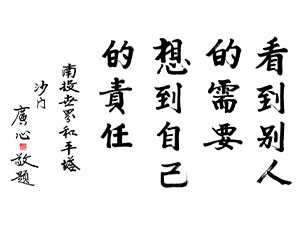 看到別人
的需要
想到自己
的責任
南投世界和平塔
沙門
廣心敬題